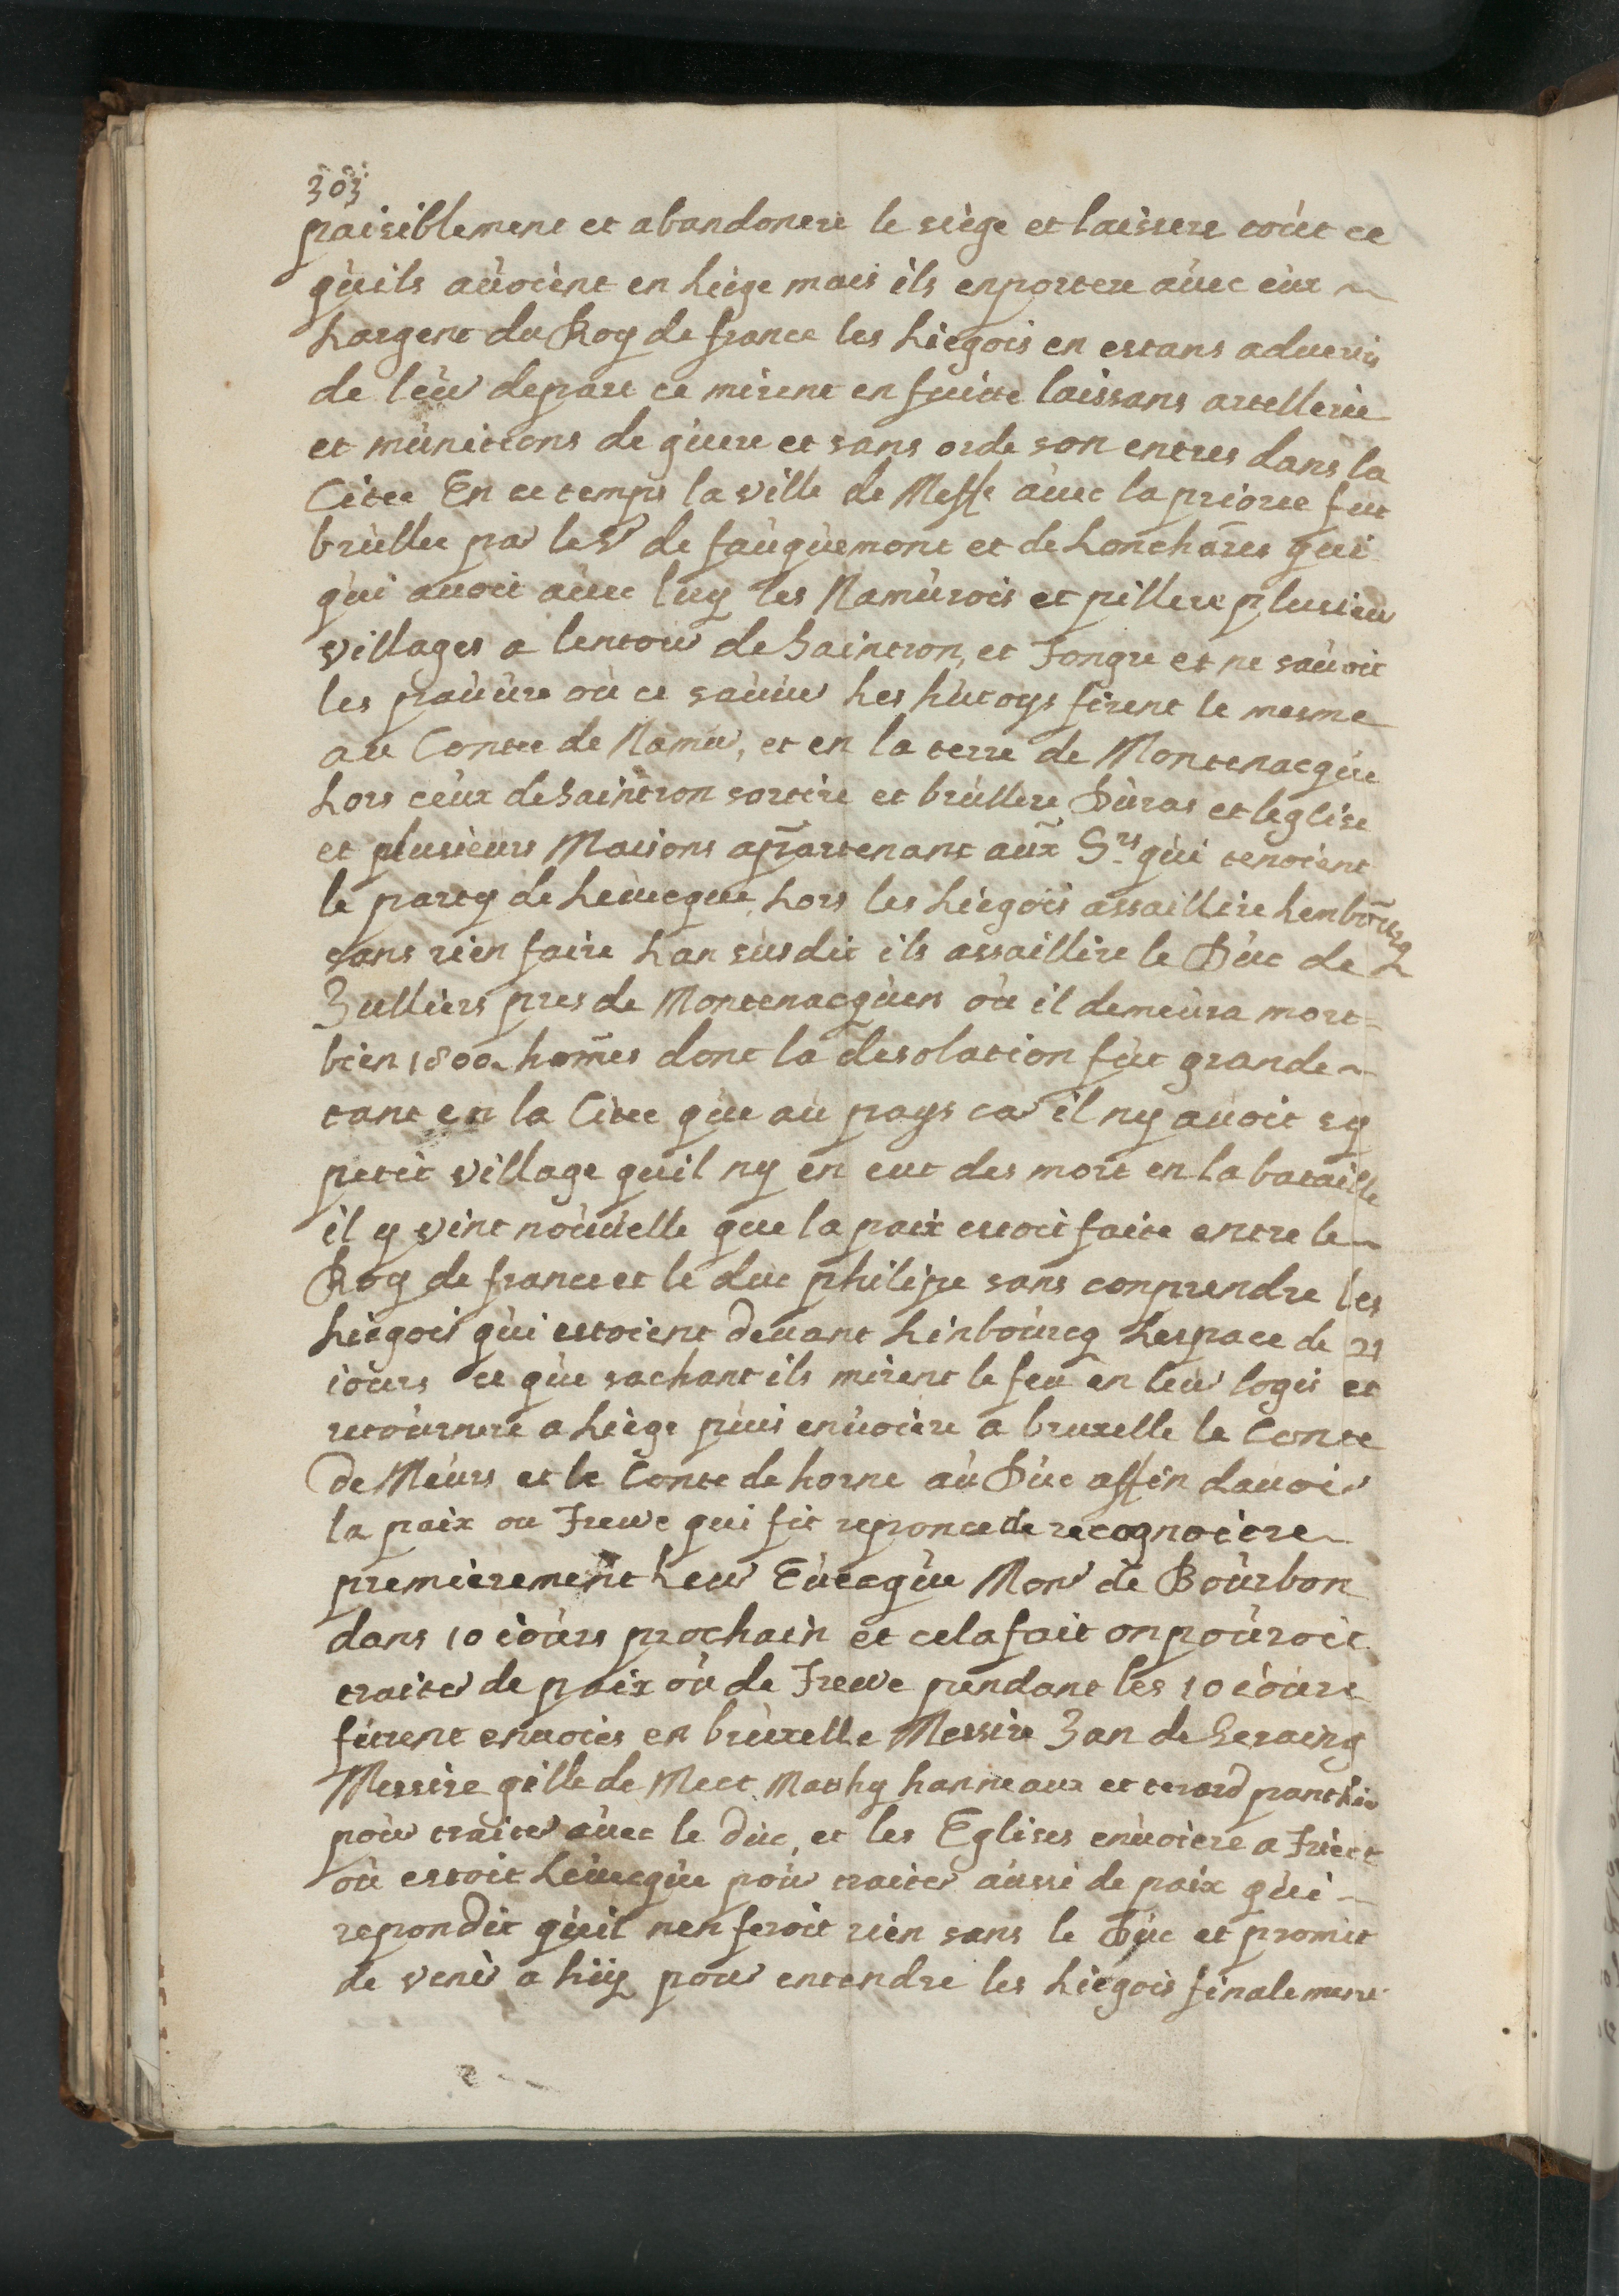 303
paisiblement et abandonere le siège et laissere toùt ce
qùils aùoient en Liège mais ils enportere aùec eùx ~
Largent du Roy de france les Liegois en estans aduertis
de leùr depart ce mirent en fuitte laissans artellerie
et mùnitions de gùere et sans orde son entres dans la
Citee En ce temps la ville de Meffe aùec la prioree fut
brùllee par le Sr de faùqùemont et de Lonchāres qui
qùi auoit aùec luy les Namùrois et pillere plusieur
villages a lentour de Saintron, et Tongre et ne saùoit
les paùùre où ce saùuer Les hùtoys firent le mesme
au Contee de Namur, et en la terre de Montenacqùe
Lors ceùx de Saintron sortire et brùllere Dùras et leglise
et plusieùrs Maisons apartenant aùx Srs qùi tenoient
le party de Leuecque, Lors les Liègois assaillire Lenboūrg
sans rien faire Lan susdit ils assaillire le Dùc de
Zulliers pres de Montenacqùen où il demeùra mort
bien 1800 homēs dont la desolation fùt grande ~
tant en la Citee qùe aù pays car il ny aùoit sy
petit village quil ny en eut des mort en la bataille
il y vint noùuelle que la paix estoit faite entre le ~
Roy de france et le duc philipe sans conprendre les
Liègois qùi estoient deuant Linboùrcq Lespace de 21
ioùrs ce qùe sachant ils mirent le feu en leùr logis et
retoùrnere a Liège pùis enùoière a bruxelle le Conte
De Meùrs et le Conte de horne aù Dùc affin dauoir
la paix ou Treuve qui fit reponce de recognoitre ~
premièrement Leur Eùecqùe Monr de Boùrbon
dans 10 ioùrs prochain et cela fait on poùroit
traiter de paix où de Treuve pendant les 10 ioùrs
fùrent enuoiés en brùxelle Messire Zan de Seraing
Messire gille de Meet Mathy hanneaux et terard panthir
poùr traiter aùec le dùc, et les Eglises enùoiere a Trièct
où estoit Leùecqùe poùr traiter aùssi de paix qùi ~
repondit qùil nen feroit rien sans le Dùc et promit
de venir a hùy pour entendre les Liegois finalement